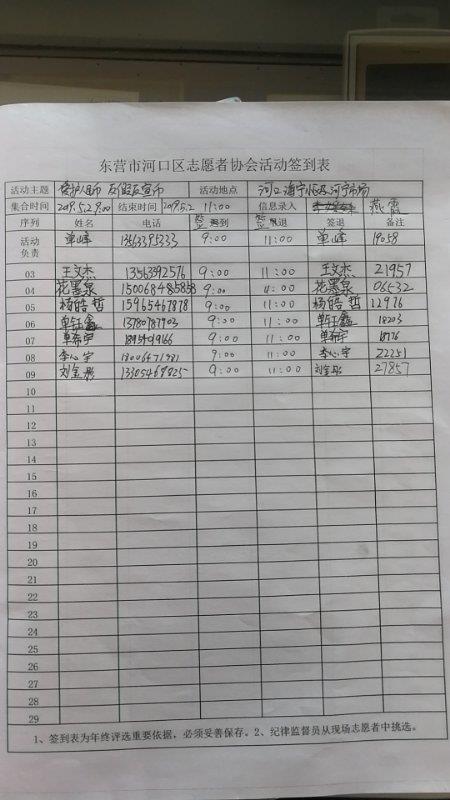 东营市河口区志愿者协会活动签到表
活动主题 爱护人民币 反假宣传 活动地点 河口海宁
集合时间 2019.5.2 9:00 结束时间 2019.5.2 11:00 信息录入 燕霞
序列 姓名 电话 签到 签退 签退 备注
活动负责 单峰 9:00 11:00 单峰 19058
03 王文杰 13563392576 9:00 11:00 王文杰 21957
04 花墨泉 150068485858 9:00 11:00 花墨泉 06432
05 杨皓哲 15965467878 9:00 11:00 杨皓哲 12976
06 单钰鑫 13780787903 9:00 11:00 单钰鑫 18203
07 单希宇 9:00 11:00 单希宇
08 李心宇 9:00 11:00 李心宇 22251
09 刘金彤 13305467825 9:00 11:00 刘金彤 27857
10
11
12
13
14
15
16
17
18
19
20
21
22
23
24
25
26
27
28
29
1、签到表为年终评选重要依据，必须妥善保存。2、纪律监督员从现场志愿者中挑选。